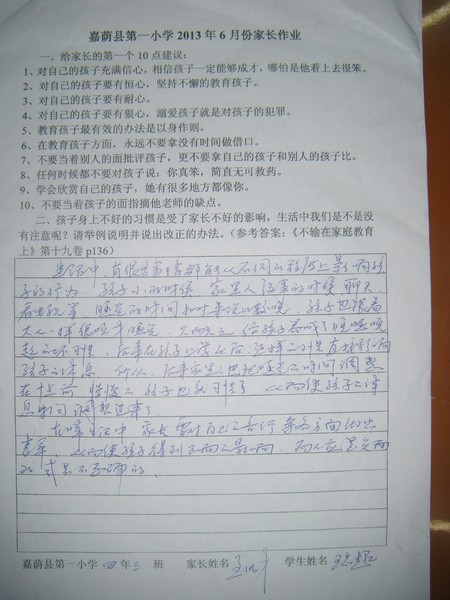 嘉荫县第一小学2013年6月份家长作业
一、给家长的第一个10点建议：
1、对自己的孩子充满信心，相信孩子一定能够成才，哪怕是他看上去很笨。
2、对自己的孩子要有恒心，坚持不懈的教育孩子。
3、对自己的孩子要有耐心。
4、对自己的孩子要有狠心，溺爱孩子就是对孩子的犯罪。
5、教育孩子最有效的办法是以身作则。
6、在教育孩子方面，永远不要拿没有时间做借口。
7、不要当着别人的面批评孩子，更不要拿自己的孩子和别人的孩子比。
8、任何时候都不要对孩子说：你真笨，简直无可救药。
9、学会欣赏自己的孩子，她有很多地方都像你。
10、不要当着孩子的面指摘他老师的缺点。
二、孩子身上不好的习惯是受了家长不好的影响，生活中我们是不是没
有注意呢？请举例说明并说出改正的办法。（参考答案：《不输在家庭教育
上》第十九卷 p136）
生活中，有很多事情都能从不同的程度上影响孩
子的行为，孩子小的时候，家里人没事的时候聊天
看电视等，睡觉的时间相对来说比较晚，孩子也跟着
大人一样很晚才睡觉，
起的坏习惯，
孩子的休息，所以，
在十点前，慢慢的孩子也就习惯了，从而使孩子的休
息时间调整过来了。
在日常生活中，家长要对自己的言行等各方面做出
表率，从而使孩子得到正面的影响，
嘉荫县第一小学 四 年 三 班 家长姓名 学生姓名